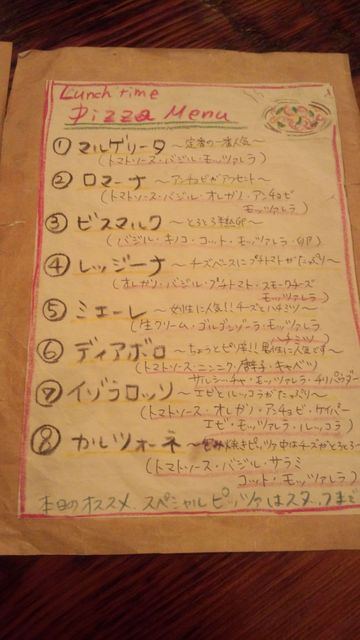 Lunch time
Pizza Menu
① マルゲリータ ～定番の一番人気～
(トマトソース・バジル・モッツァレラ)
② ロマーナ ～アンチョビがアクセント～
(トマトソース・バジル・オレガノ・アンチョビ
モッツァレラ)
③ ビスマルク ～とろとろ半熟卵～
(バジル・キノコ・コット・モッツァレラ・卵)
④ レッジーナ ～チーズベースにプチトマトがたっぷり～
(オレガノ・バジル・プチトマト・スモークチーズ
モッツァレラ)
⑤ ミエーレ ～女性に人気!!チーズとハチミツ～
(生クリーム・ゴルゴンゾーラ・モッツァレラ
ハチミツ)
⑥ ディアボロ ～ちょっとピリ辛!!男性に人気です～
(トマトソース・ニンニク・唐辛子・キャベツ
サルシーチャ・モッツァレラ・チリパウダー
⑦ イゾラロッソ ～エビとルッコラがたっぷり～
(トマトソース・オレガノ・アンチョビ・ケイパー
エビ・モッツァレラ・ルッコラ)
⑧ カルツォーネ ～包み焼きピッツァ中はチーズがとろとろ～
(トマトソース・バジル・サラミ
コット・モッツァレラ)
本日のオススメ、スペシャルピッツァはスタッフまで